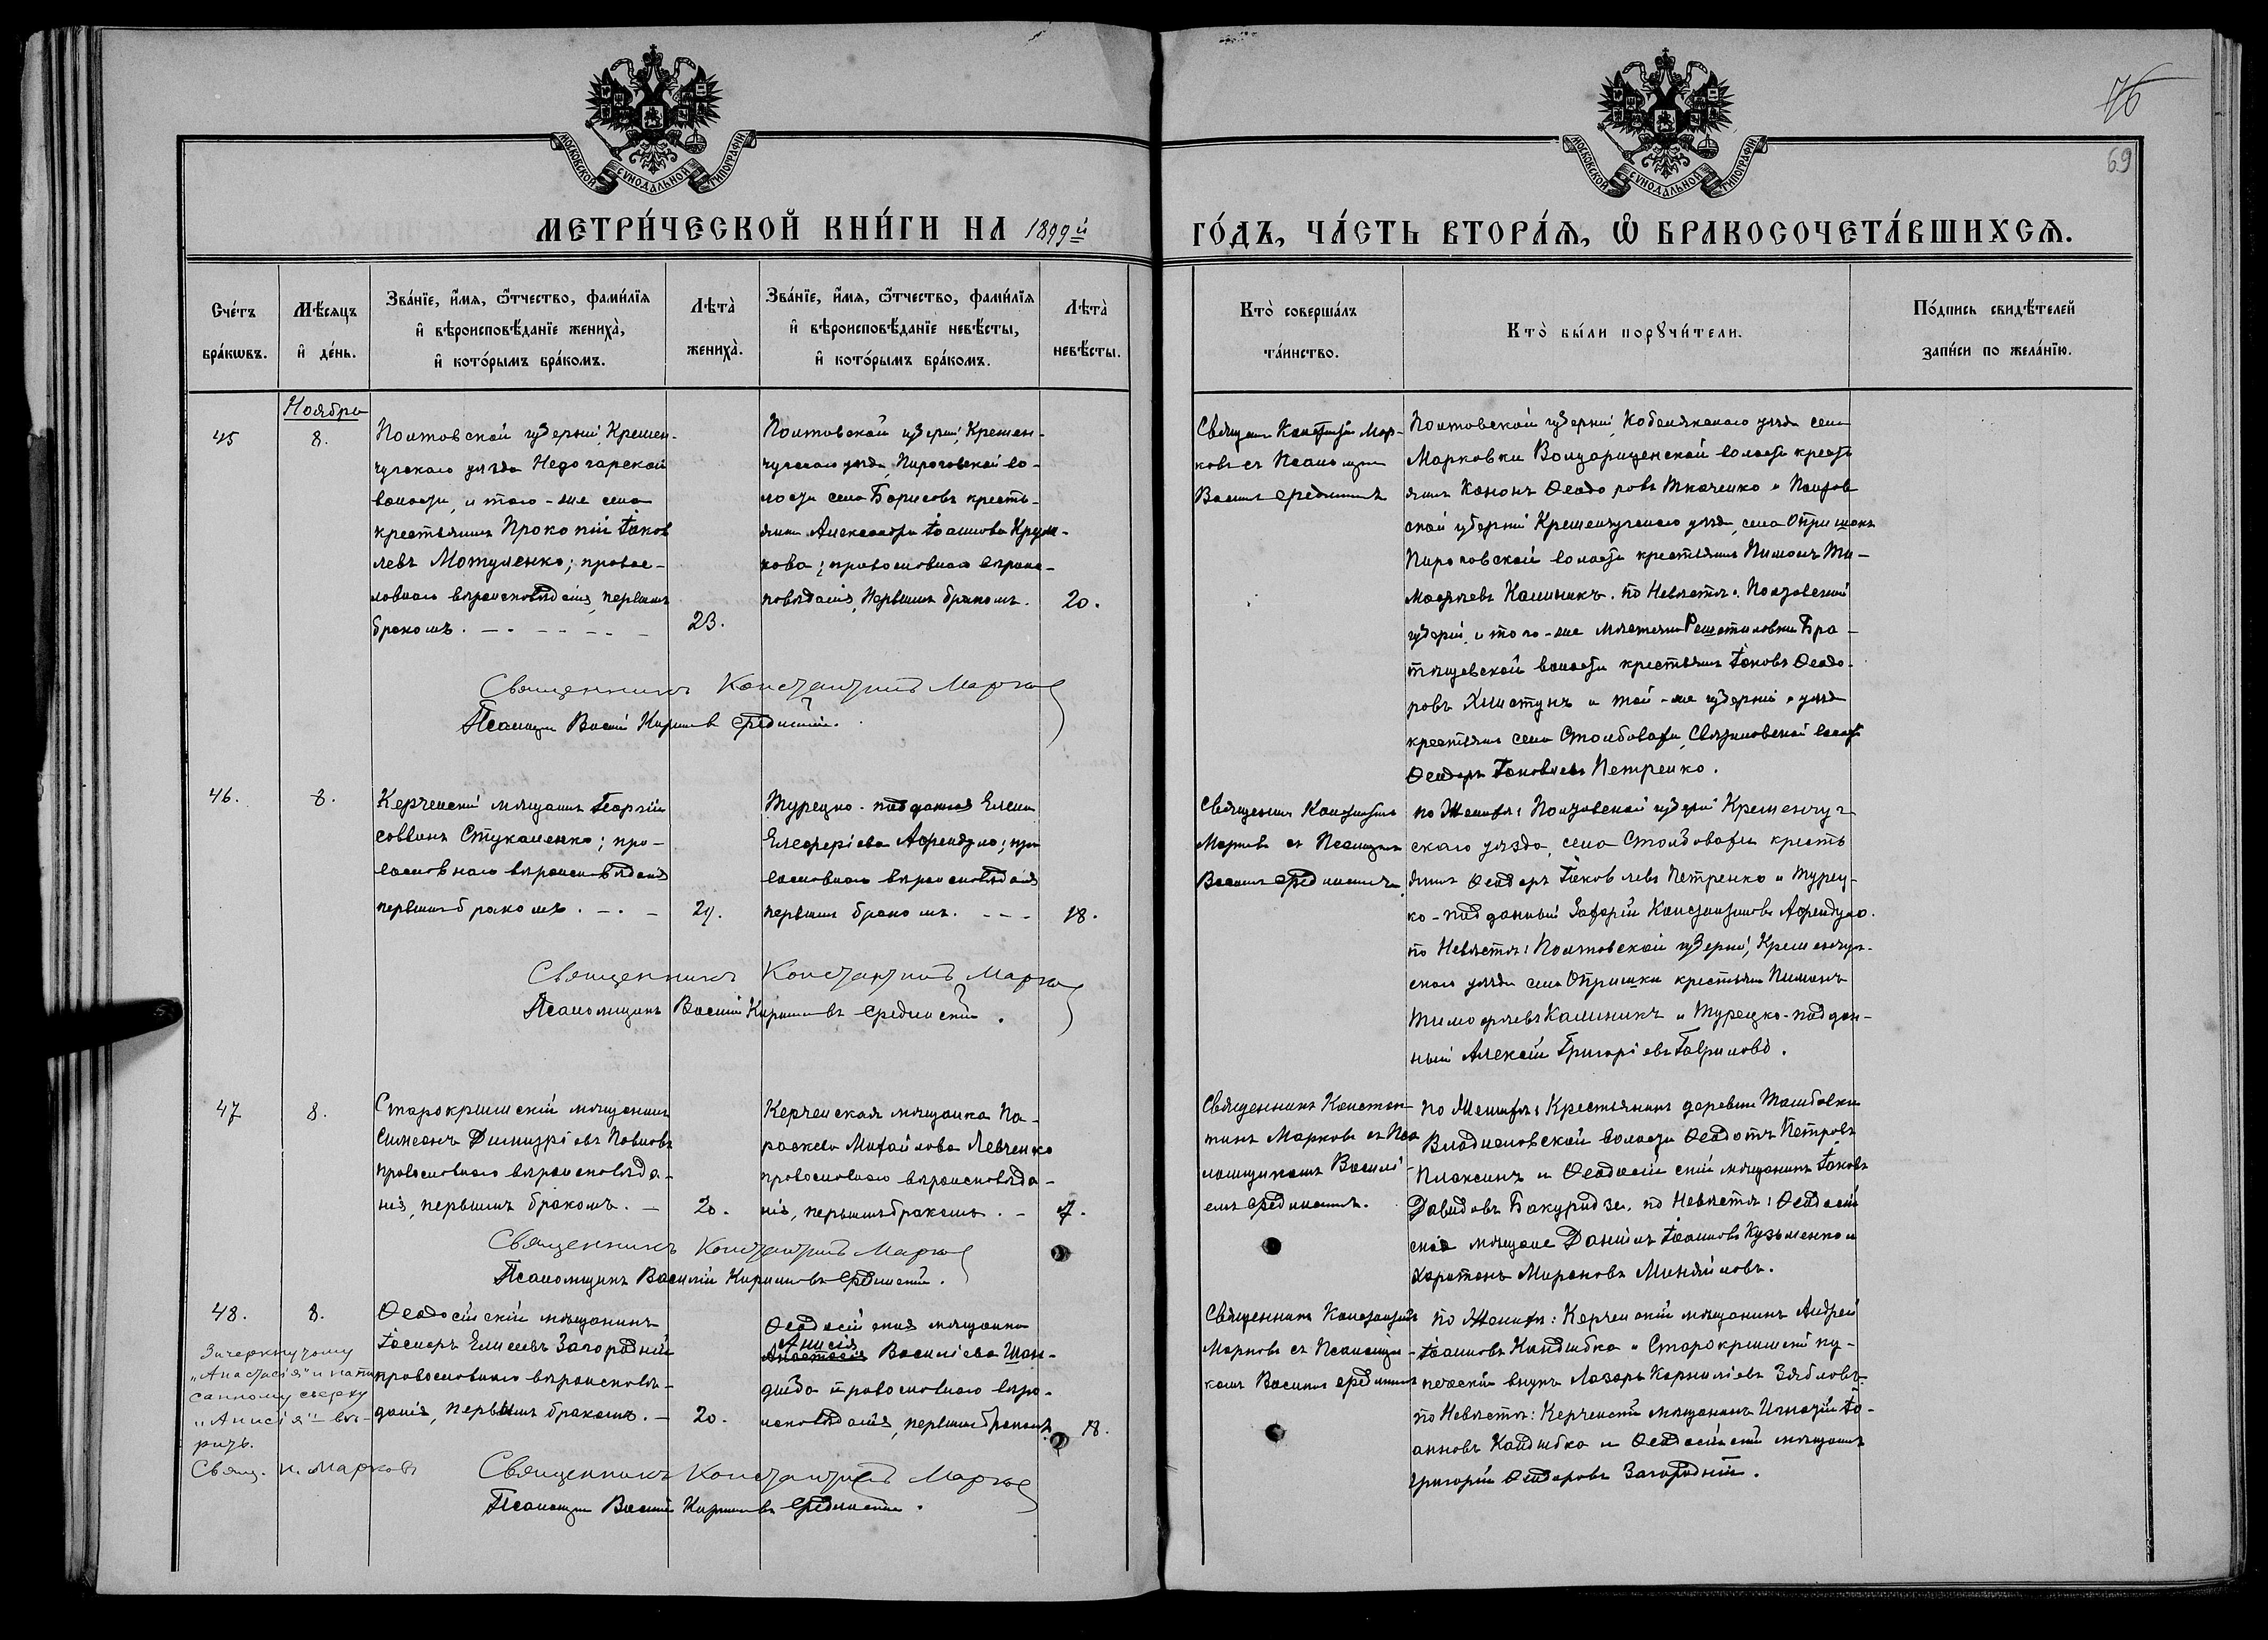 76
69
МОСКОВСКОЙ СУНОДАЛЬНОЙ ТИПОГРАФІИ
МОСКОВСКОЙ СУНОДАЛЬНОЙ ТИПОГРАФІИ
МЕТРИ́ЧЕСКОЙ КНИ́ГИ НА 1899й
ГО́ДЪ, ЧА́СТЬ ВТОРА́Я, Ѽ БРАКОСОЧЕТА́ВШИХСЯ.
Сче́тъ бра́кѡвъ.
Мѣ́сяцъ и҆ де́нь.
Зва́нїе, и҆́мя, ѻ҆́тчество, фами́лїя
и҆ вѣроисповѣ́данїе жениха̀,
и҆ кото́рымъ бра́комъ.
Лѣта̀ жениха̀.
Зва́нїе, и҆́мя, ѻ҆́тчество, фами́лїя
и҆ вѣроисповѣ́данїе невѣ́сты,
и҆ кото́рымъ бра́комъ.
Лѣта̀ невѣ́сты.
Кто̀ соверша́лъ та́инство.
Кто̀ бы́ли порꙋчи́тели.
По́дпись свидѣ́телей
за́писи по жела́нїю.
Ноября
45
8.
Полтовской губерніи, Кремен-
чугскаго уѣзда Недогарской
волости, и того-же села
крестьянинъ Прокопій Іаков
левъ Мотуленко; правос-
лавнаго вѣроисповѣданія, первымъ
бракомъ.
23.
Полтовской губерніи, Кремен-
чугскаго уѣзда Пироговской во-
лости села Борисовъ кресть-
янка Александра Іоаннова
кова; православнаго вѣроис-
повѣданія, первымъ бракомъ.
20.
Священникъ Константинъ Мар-
ковъ съ Псаломщ
Васил Срединскимъ
Полтовской губерніи, Кобелякскаго уѣзда села
Марковки волости крест
янинъ Кононъ Ѳеодоровъ Ткаченко и Полтов
ской губерніи Кременчугскаго уѣзда, села Опришокъ
Пироговской волости крестьянинъ Пименъ Ти-
моѳеевъ Калиникъ. по Невѣстѣ: Полтовской
губерніи, и того-же мѣстечка Решетиловки Бра-
тешцевской волости крестьянинъ Іаковъ Ѳеодо-
ровъ Хлистунъ и той-же губерніи и уѣзда
крестьянинъ села волости
Ѳеодоръ Іаковлевъ Петренко.
Священникъ Константинъ Марковъ
Псаломщ Василій Кириловъ Срединскій.
46.
8.
Керченскій мѣщанинъ Георгій
Саввинъ Стукаленко; пра-
вославнаго вѣроисповѣданія
первымъ бракомъ.
29.
Турецко-подданная Елена
Елеѳеріева Афендуло; пра
вославнаго вѣроисповѣданія
первымъ бракомъ.
18.
Священникъ Константинъ
Марковъ съ Псаломщ
Василіемъ Срединскимъ.
по Женихѣ: Полтовской губерніи Кременчуг
скаго уѣзда, села кресть
янинъ Ѳеодоръ Іаковлевъ Петренко и Турец-
ко-подданный Захарій Константиновъ Афендуло.
по Невѣстѣ: Полтовской губерніи, Кременчуг-
скаго уѣзда села Опришки крестьянинъ Пименъ
Тимоѳеевъ Калиникъ и Турецко-поддан-
ный Алексій Григоріевъ Гавриловъ.
Священникъ Константинъ Марковъ
Псаломщикъ Василій Кириловъ Срединскій.
47
8.
Старокрымскій мѣщанинъ
Симеонъ Димитріевъ Павловъ
православнаго вѣроисповѣда-
нія, первымъ бракомъ.
20.
Керченская мѣщанка Па-
раскева Михайлова Левченко
православнаго вѣроисповѣда-
нія, первымъ бракомъ.
17.
Священникъ Констан-
тинъ Марковъ съ Пса
ломщикомъ Василі-
емъ Срединскимъ.
по Женихѣ: Крестьянинъ деревни
Владиславской волости Ѳеодотъ Петровъ
Плаксинъ и Ѳеодосійскій мѣщанинъ Іаковъ
Давидовъ Бакуридзе, по Невѣстѣ: Ѳеодосій
скіе мѣщане Даніилъ Іоанновъ Кузьменко и
Харитонъ Мироновъ Миняйловъ.
Священникъ Константинъ Марковъ
Псаломщикъ Василій Кириловъ Срединскій.
48.
8.
Ѳеодосійскій мѣщанинъ
Іосифъ Елисеевъ Загородній
православнаго вѣроисповѣ-
данія, первымъ бракомъ.
20.
Ѳеодосійская мѣщанка
Анисія
Анастасія Василіева Шан-
дыба православнаго вѣро-
исповѣданія, первымъ бракомъ.
18.
Зачеркнутому
„Анастасія" и напи
санному сверху
„Анисія" – вѣ-
рить.
Свящ. К. Марковъ
Священникъ Константинъ
Марковъ съ Псаломщи-
комъ Василіемъ Срединскимъ
по Женихѣ: Керченскій мѣщанинъ Андрей
Іоанновъ Кандыбка и Старокрымскій ку-
печескій внукъ Лазарь Корниліевъ Зябловъ.
по Невѣстѣ: Керченскій мѣщанинъ Игнатій Іо-
анновъ Кандыбка и Ѳеодосійскій мѣщанинъ
Григорій Ѳеодоровъ Загородній.
Священникъ Константинъ Марковъ
Псаломщ Василій Кириловъ Срединскій.